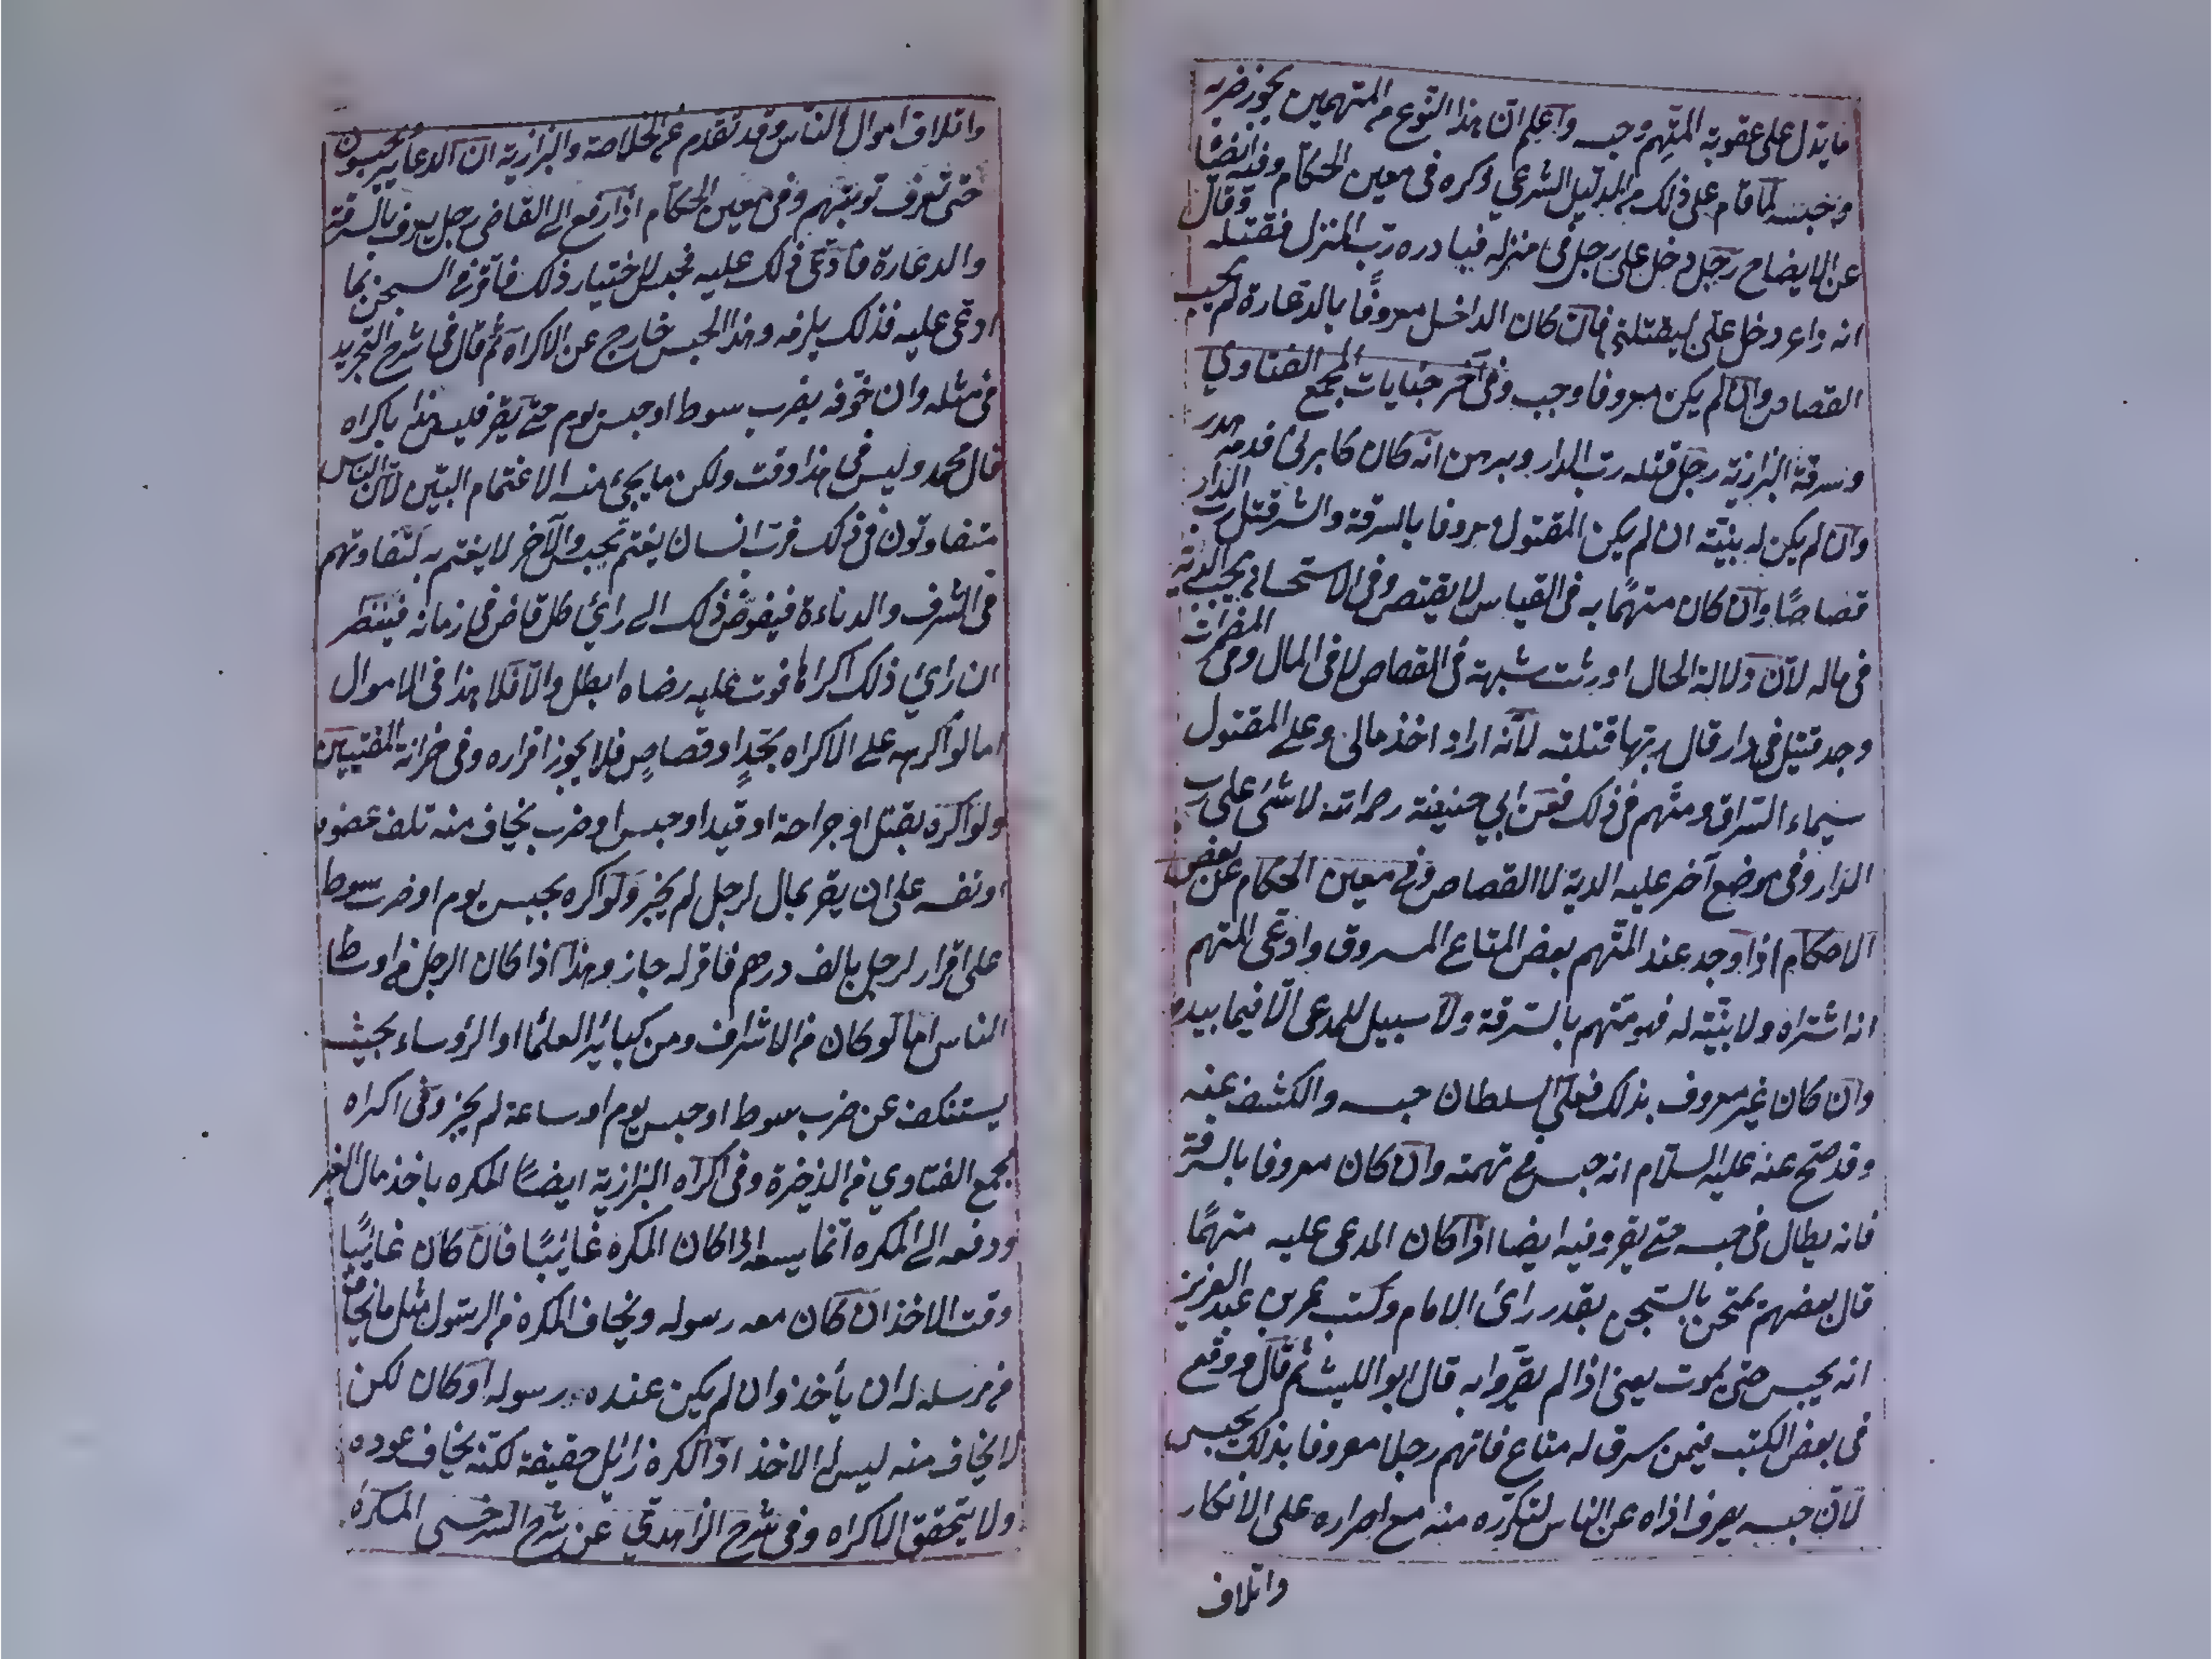 ما يدل على عقوبة المتهم وحبسه واعلم ان هذا النوع من المتهمين يجوز ضربه
وحبسه لما قام على ذلك من الدليل الشرعي ذكره في معين الحكام وفيه ايضا
عن الايضاح رجل دخل على رجل في منزله فبادره رب المنزل فقتله وقال
انه داعر دخل علي ليقتلني فان كان الداخل معروفا بالدعارة لم يجب
القصاص وان لم يكن معروفا وجب وفي آخر جنايات مجمع الفتاوي
وسرقة البزازية رجل قتله رب الدار وبرهن انه كان كابرني فدمه هدر
وان لم يكن له بينة ان لم يكن المقتول معروفا بالسرقة والشر قتل رب الدار
قصاصا وان كان متهما به في القياس لا يقتص وفي الاستحسان يجب الدية
في ماله لان دلالة الحال اورثت شبهة في القصاص لا في المال وفي المضمرات
وجد قتيل في دار قال ربها قتلته لانه اراد اخذ مالي وعلى المقتول
سيماء السراق ومتهم في ذلك فعن ابي حنيفة رحمه الله لا شئ على رب
الدار وفي موضع آخر عليه الدية لا القصاص وفي معين الحكام عن بعض
الاحكام اذا وجد عند المتهم بعض المتاع المسروق وادعى المتهم
انه اشتراه ولا بينة له فهو متهم بالسرقة ولا سبيل للمدعى الا فيما بيده
وان كان غير معروف بذلك فعلى السلطان حبسه والكشف عنه
وقد صح عنه عليه السلام انه حبس في تهمته وان كان معروفا بالسرقة
فانه يطال في حبسه حتى يقر وفيه ايضا اذا كان المدعى عليه متهما
قال بعضهم يمتحن بالسجن بقدر رائ الامام وكتب عمر بن عبد العزيز
انه يحبس حتى يموت يعنى اذا لم يقروا به قال ابو الليث ثم قال ووقع
في بعض الكتب فيمن سرق له متاع فاتهم رجلا معروفا بذلك يحبس
لان حبسه يصرف اذاه عن الناس لتكرره منه مع اصراره على الانكار
واتلاف
واتلاف اموال الناس وقد تقدم عن الخلاصة والبزازية ان الدعار يحبسون
حتى تعرف توبتهم وفي معين الحكام اذا رفع الى القاضي رجل يعرف بالسرقة
والدعارة فادعى ذلك عليه فحبس لاختبار ذلك فاقر في السجن بما
ادعى عليه فذلك يلزمه وهذا الحبس خارج عن الاكراه ثم قال في شرح التجريد
في مثله وان خوفه بضرب سوط او حبس يوم حتى يقر فليس هذا باكراه
قال محمد وليس في هذا وقت ولكن ما يجئ منه الاغتمام البين لان الناس
متفاوتون في ذلك فرب انسان يغتم بحبس والآخر لا يغتم به لتفاوتهم
في الشرف والدناءة فيفوض ذلك الى رائ كل قاض في زمانه فينظر
ان رائ ذلك اكراها فوت عليه رضاه ابطل والا فلا هذا في الاموال
اما لو اكرهه على الاكراه بحد او قصاص فلا يجوز اقراره وفي خزانة المفتيين
ولو اكره بقتل او جراحة او قيد او حبس او ضرب يخاف منه تلف عضو
او نفسه على ان يقر بمال لرجل لم يجز ولو اكره بحبس يوم او ضرب سوط
على اقرار لرجل بالف درهم فاقر له جاز وهذا اذا كان الرجل من اوساط
الناس اما لو كان من الاشراف ومن كبائر العلماء او الرؤساء بحيث
يستنكف عن ضرب سوط او حبس يوم او ساعة لم يجز وفي اكراه
مجمع الفتاوي من الذخيرة وفي اكراه البزازية ايضا المكره باخذ مال الغير
ودفعه الى المكره انما يسعه اذا كان المكره غائبا فان كان غائبا
وقت الاخذ ان كان معه رسوله ويخاف المكره من الرسول مثل ما يخاف
من مرسله له ان يأخذ وان لم يكن عنده رسوله او كان لكن
لا يخاف منه ليس له الاخذ اذ الكره زائل حقيقة لكنه يخاف عوده
ولا يتحقق الاكراه وفي شرح الزاهدي عن شرح السرخسى المكره